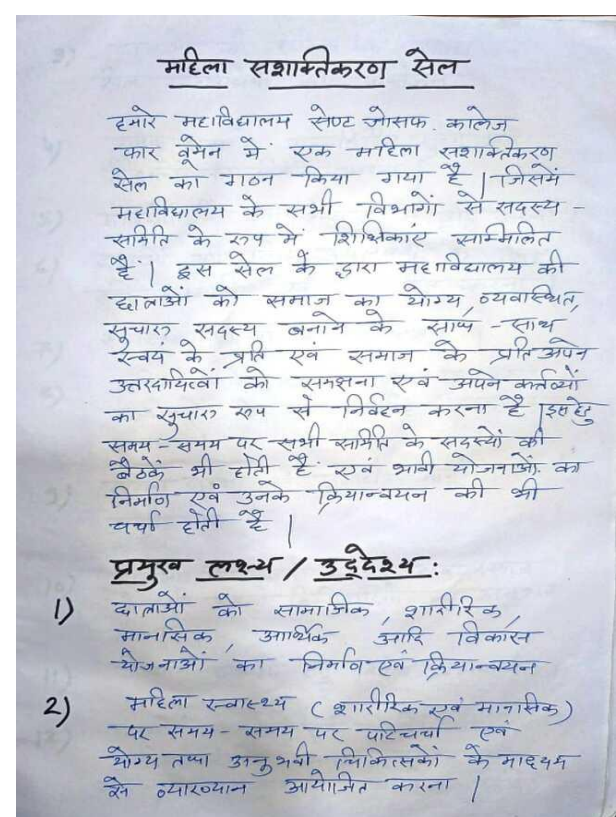 महिला सशक्तिकरण सेल
हमारे महाविद्यालय सेण्ट जोसफ. कालेज
फार वूमेन में एक महिला सशक्तिकरण
सेल का गठन किया गया है | जिसमें
महाविद्यालय के सभी विभागों से सदस्य -
समिति के रुप में शिक्षिकाएं सम्मिलित
हैं | इस सेल के द्वारा महाविद्यालय की
छात्राओं को समाज का योग्य, व्यवस्थित,
सुचारु सदस्य बनाने के साथ - साथ
स्वयं के प्रति एवं समाज के प्रति अपने
उत्तरदायित्वों को समझना एवं अपने कर्तव्यों
का सुचारु रुप से निर्वहन करना है | इस हेतु
समय - समय पर सभी समिति के सदस्यों की
बैठकें भी होती हैं एवं भावी योजनाओं का
निर्माण एवं उनके क्रियान्वयन की भी
चर्चा होती है |
प्रमुख लक्ष्य / उद्देश्य :
1) छात्राओं को सामाजिक, शारीरिक,
मानसिक, आर्थिक आदि विकास
योजनाओं का निर्माण एवं क्रियान्वयन
2) महिला स्वास्थ्य (शारीरिक एवं मानसिक)
पर समय - समय पर परिचर्चा एवं
योग्य तथा अनुभवी चिकित्सकों के माध्यम
से व्याख्यान आयोजित करना |